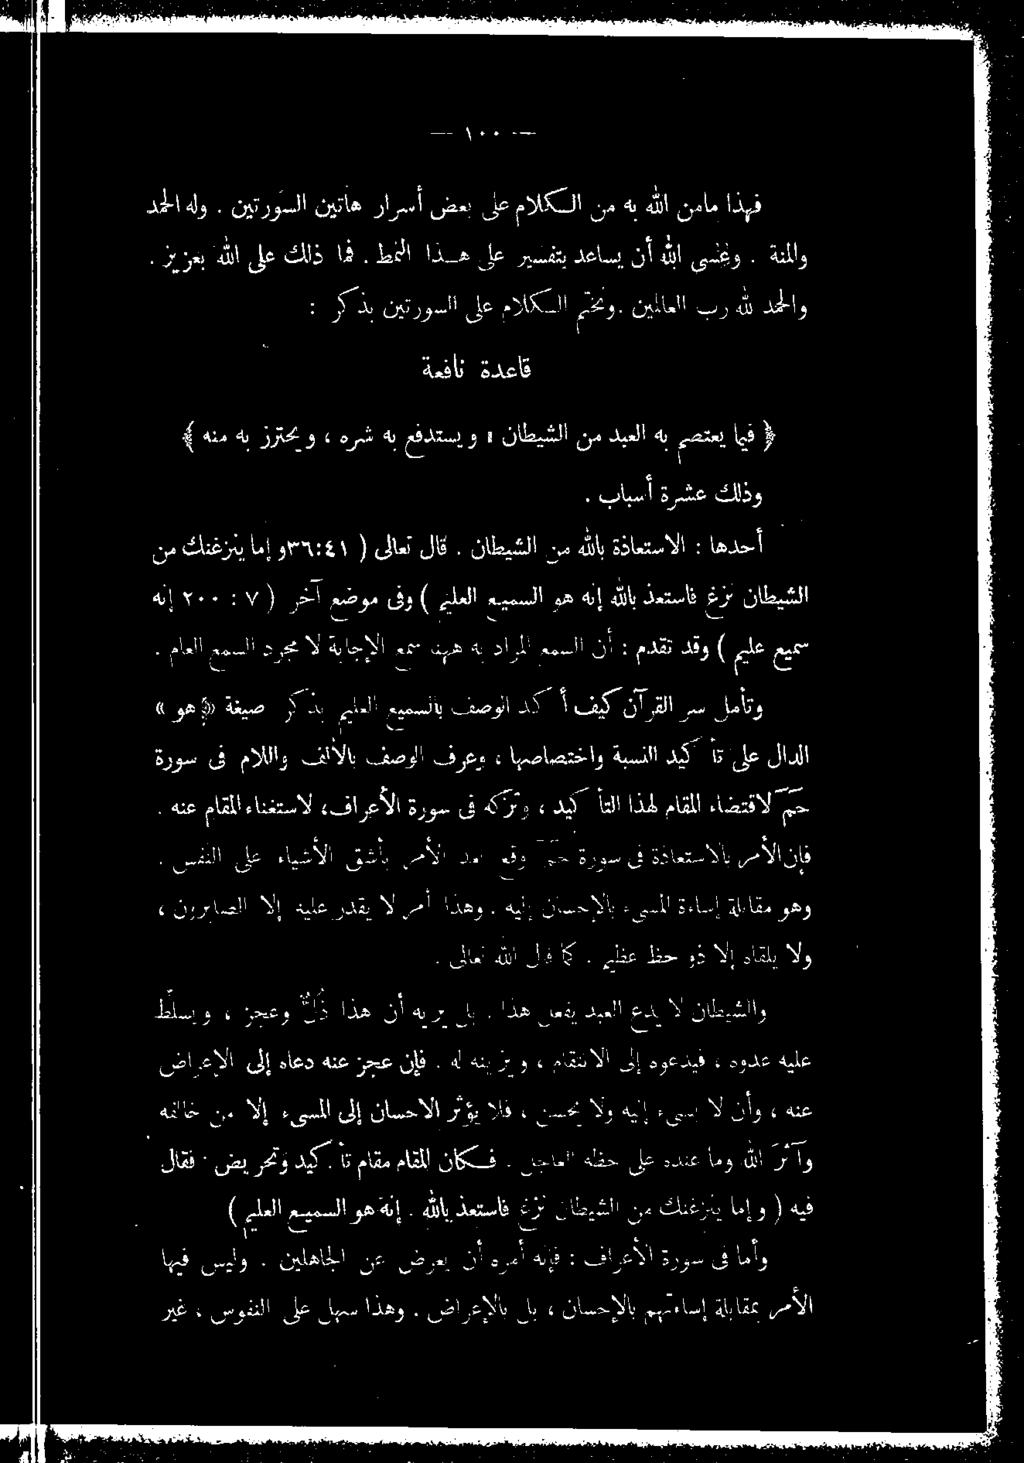 — ١٠٠ —
فهذا مامن الله به من الكلام على بعض أسرار هاتين السورتين . وله الحمد
والمنة . وعسى الله أن يساعد بتفسير على هذا النمط . فما ذلك على الله بعزيز .
والحمد لله رب العالمين . ونختم الكلام على السورتين بذكر :
قاعدة نافعة
﴿ فيما يعتصم به العبد من الشيطان ، ويستدفع به شره ، ويحترز به منه ﴾
وذلك عشرة أسباب .
أحدها : الاستعاذة بالله من الشيطان . قال تعالى ( ٤١:٣٦ وإما ينزغنك من
الشيطان نزغ فاستعذ بالله إنه هو السميع العليم ) وفى موضع آخر ( ٧ : ٢٠٠ إنه
سميع عليم ) وقد تقدم : أن السمع المراد به ههنا سمع الإجابة لا مجرد السمع العام .
وتأمل سر القرآن كيف أكد الوصف بالسميع العليم بذكر صيغة « هو »
الدال على تأكيد النسبة واختصاصها ، وعرف الوصف بالألف واللام فى سورة
حمّ لاقتضاء المقام لهذا التأكيد ، وتركه فى سورة الأعراف ، لاستغناء المقام عنه .
فإن الأمر بالاستعاذة فى سورة حمّ وقع بعد الأمر بأشق الأشياء على النفس .
وهو مقابلة إساءة المسىء بالإحسان إليه . وهذا أمر لا يقدر عليه إلا الصابرون ،
ولا يلقاه إلا ذو حظ عظيم . كما قال الله تعالى .
والشيطان لا يدع العبد يفعل هذا . بل يريه أن هذا ذُلٌّ وعجز ، ويسلّط
عليه عدوه ، فيدعوه إلى الانتقام ، ويزينه له . فإن عجز عنه دعاه إلى الإعراض
عنه ، وأن لا يسىء إليه ولا يحسن ، فلا يؤثر الاحسان إلى المسىء إلا من خالفه
وآثرَ الله وما عنده على حظه العاجل . فكان المقام مقام تأكيد وتحريض . فقال
فيه ( وإما ينزغنك من الشيطان نزغ فاستعذ بالله . إنه هو السميع العليم )
وأما فى سورة الأعراف : فإنه أمره أن يعرض عن الجاهلين . وليس فيها
الأمر بمقابلة إساءتهم بالإحسان ، بل بالإعراض . وهذا سهل على النفوس ، غير